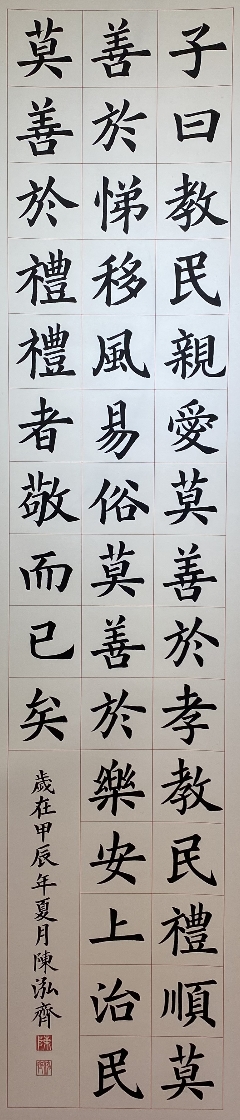 子曰教民親愛莫善於孝教民禮順莫
善於悌移風易俗莫善於樂安上治民
莫善於禮禮者敬而已矣
歲在甲辰年夏月陳泓齊